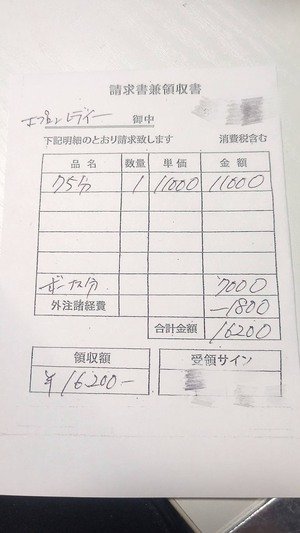 請求書兼領収書
エプロンレディー 御中
下記明細のとおり請求致します 消費税含む
品名 数量 単価 金額
75分 1 11000 11000
ボーナス分 7000
外注諸経費 -1800
合計金額 16200
領収額 受領サイン
¥16.200-